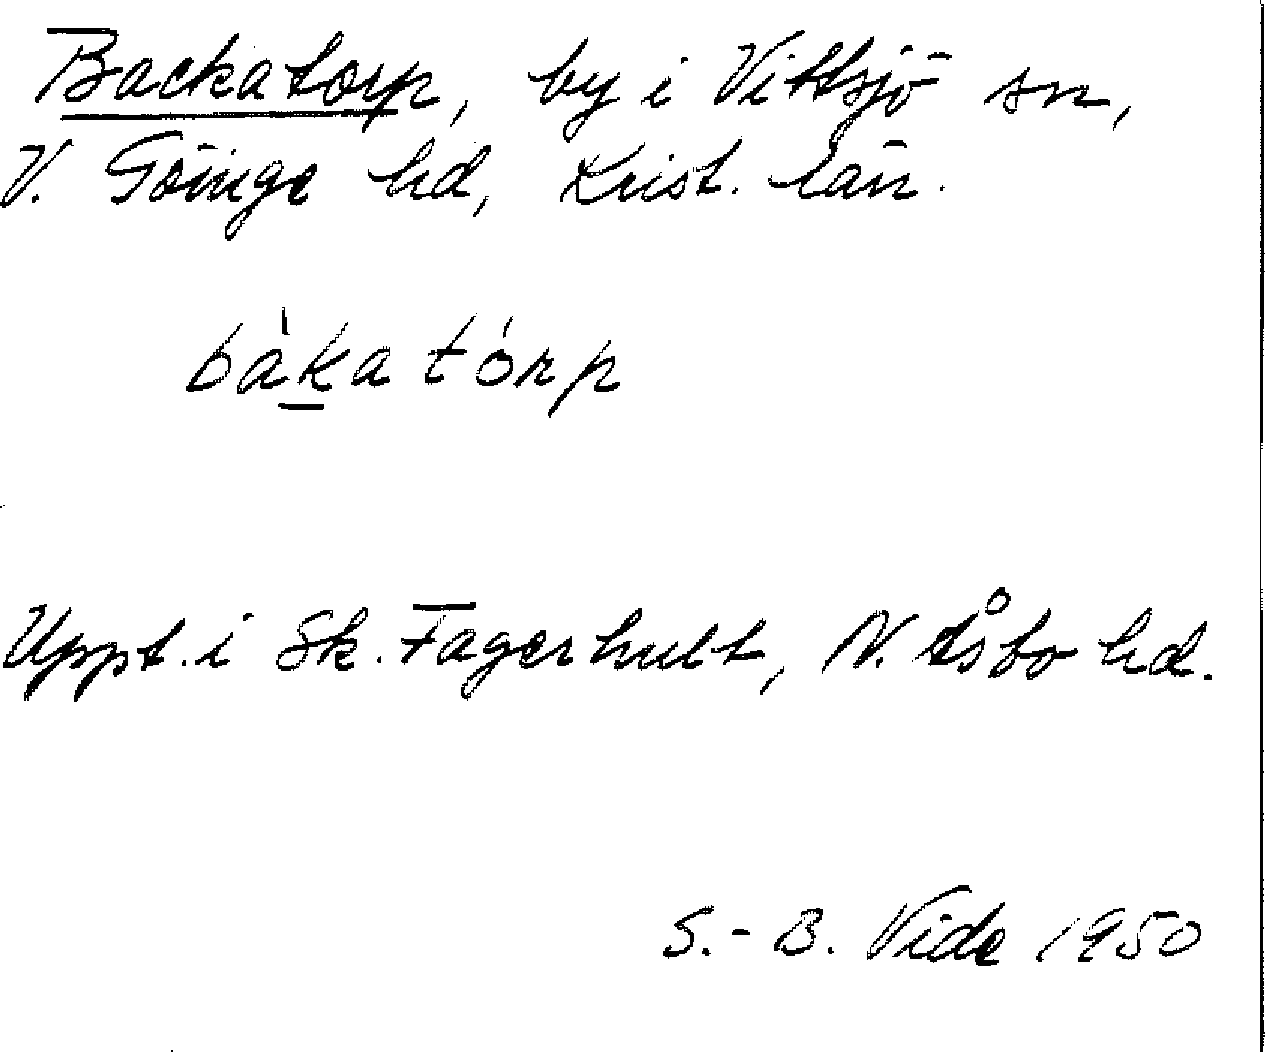 Backatorp, by i Vittsjö sn,
V. Göinge hd, Krist. län.
bàkatórp
Uppt. i Sk. Fagerhult, N. Åsbo hd.
S.-B. Vide 1950